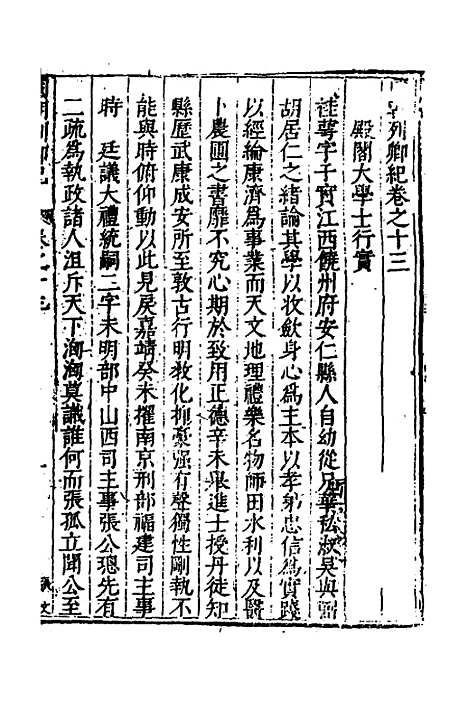 列卿紀卷之十三
殿閣大學士行實
桂萼字子實江西饒州府安仁縣人自幼從兄華私淑吳與弼
胡居仁之緒論其學以收斂身心為主本以孝弟忠信為實踐
以經綸康濟為事業而天文地理禮樂名物師田水利以及醫
卜農圃之書靡不究心期於致用正德辛未舉進士授丹徒知
縣歷武康成安所至敦古行明教化抑豪強有聲獨性剛執不
能與時俯仰動以此見戾嘉靖癸未擢南京刑部福建司主事
時 廷議大禮統嗣二字未明部中山西司主事張公璁先有
二疏為執政諸人沮斥天下洶洶莫識誰何而張孤立聞公至